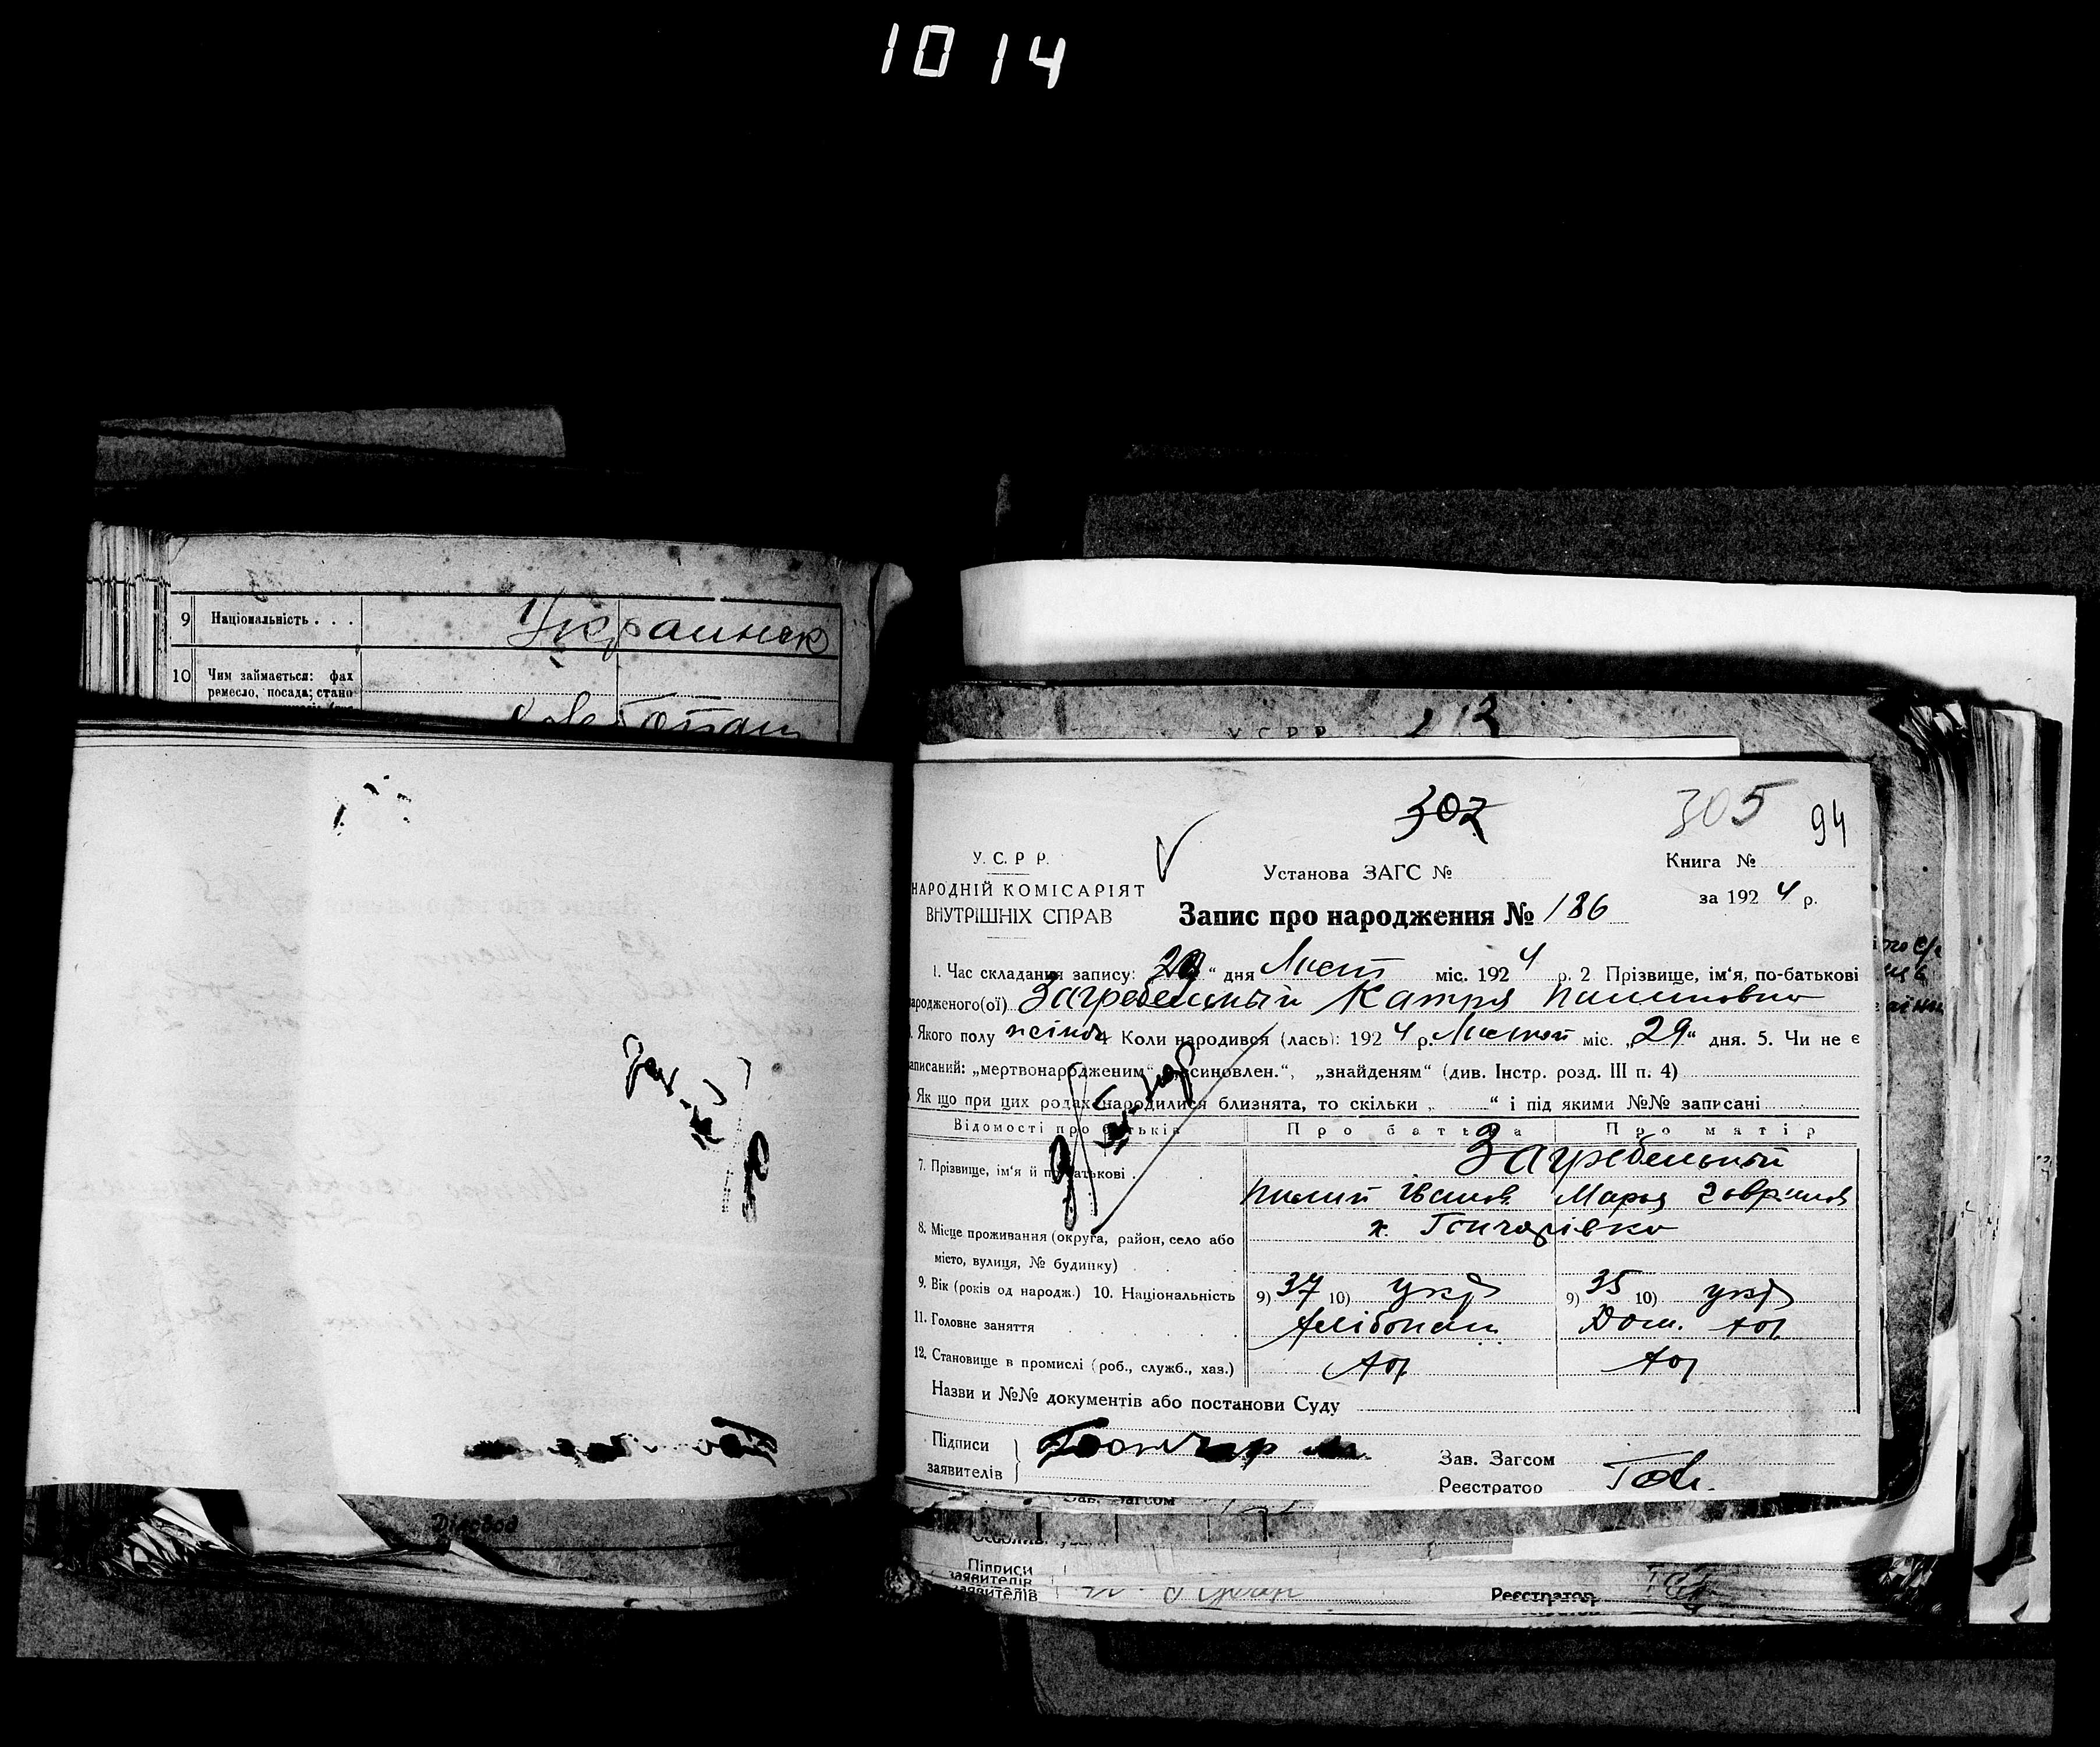 1014
9 Національність . . . Украинск
10 Чим займається: фах
ремесло, посада; стано
Хлебопаш
Діловод
У С Р Р
302
305 94
У. С. Р Р.
Установа ЗАГС №
Книга №
НАРОДНІЙ КОМІСАРІЯТ
за 1924 р.
ВНУТРІШНІХ СПРАВ
Запис про народження № 186
1. Час складання запису: 29 “ дня Лист міс. 1924 р. 2 Прізвище, ім‘я, по-батькові
народженого(ої) Загребельный Катря Пилиповна
Якого полу жіноч 4 Коли народився (лась): 1924 р. Листоп міс. „29“ дня. 5. Чи не є
записаний: „мертвонародженим“ „усиновлен.“, „знайденям“ (див. Інстр. розд. III п. 4)
Як що при цих родах народилися близнята, то скільки „ “ і під якими №№ записані
Відомості про батьків Про батька Про матір
7. Прізвище, ім‘я й по батькові . Загребельный
Пилип Іванов Марья Говрилов
8. Місце проживання (округа, район, село або х. Гончарівка
місто, вулиця, № будинку)
9. Вік (років од народж.) 10. Національність 9) 37 10) укр 9) 35 10) укр
11. Головне заняття Хлібопаш Дом. хоз
12. Становище в промислі (роб., служб., хаз.) Хоз Хоз
Назви и №№ документів або постанови Суду
Підписи
заявителів
Гончар М
Зав. Загсом
Реєстратор
Зав. Загсом
Підписи
заявителів
заявителів
Реєстратор